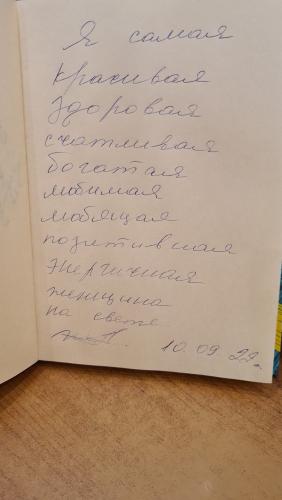 Я самая
красивая
здоровая
счастливая
богатая
любимая
любящая
позитивная
энергичная
женщина
на свете
10.09 22г.